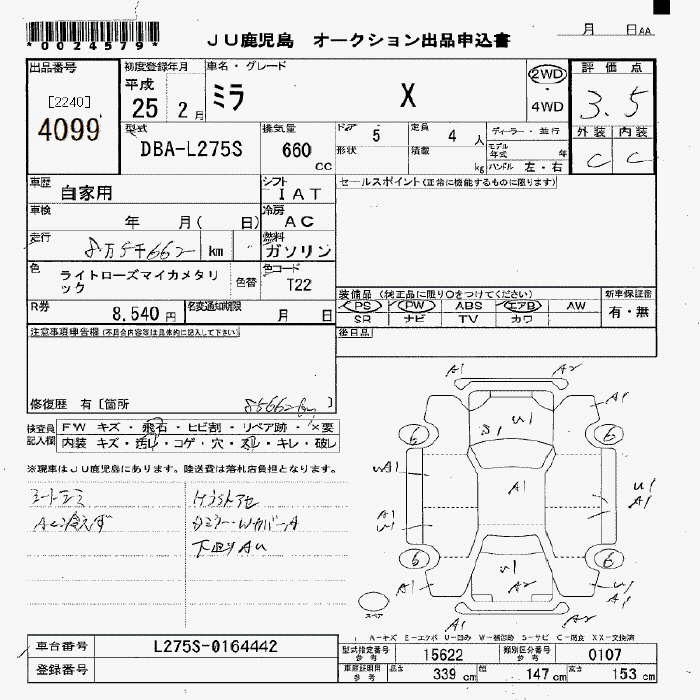 *0024579*
JU鹿児島 オークション出品申込書
月 日AA
出品番号
[2240]
4099
初度登録年月
平成
25 2月
車名・グレード
ミラ X
2WD
・
4WD
評価点
3.5
外装 内装
C C
型式
DBA-L275S
排気量
660
CC
ドア 5
定員 4 人
形状
積載 kg
ディーラー・並行
モデル年式 年
ハンドル 左・右
車歴
自家用
シフト
IAT
セールスポイント(正常に機能するものに限ります)
車検
年 月( 日)
冷房
AC
走行
8万5千662 km
燃料
ガソリン
色
ライトローズマイカメタリック
色替
色コード
T22
装備品 (純正品に限り○をつけてください)
PS PW ABS エアB AW
SR ナビ TV カワ
新車保証書
有・無
R券
8,540 円
名変通知期限
月 日
後日品
注意事項車告欄(不具合内容等は具体的に記入して下さい)
修復歴 有[箇所 85662km ]
検査員記入欄
FW キズ・飛石・ヒビ割・リペア跡・×要
内装 キズ・汚れ・コゲ・穴・スレ・キレ・破レ
※現車はJU鹿児島にあります。陸送費は落札店負担となります。
A/C冷えず
下廻りAU
A1 A2
A1 U1 A1
S1
6 6
WA1 A1 U1
A1 A1
6 6
A1 U1 A2 U1 A1
A1 A2
スペア
A-キズ E-エクボ U-凹み W-補修跡 S-サビ C-腐食 XX-交換済
車台番号
L275S-0164442
登録番号
型式指定番号 参考
15622
類別区分番号 参考
0107
車庫証明用 参考
長さ 339 cm
幅 147 cm
高さ 153 cm